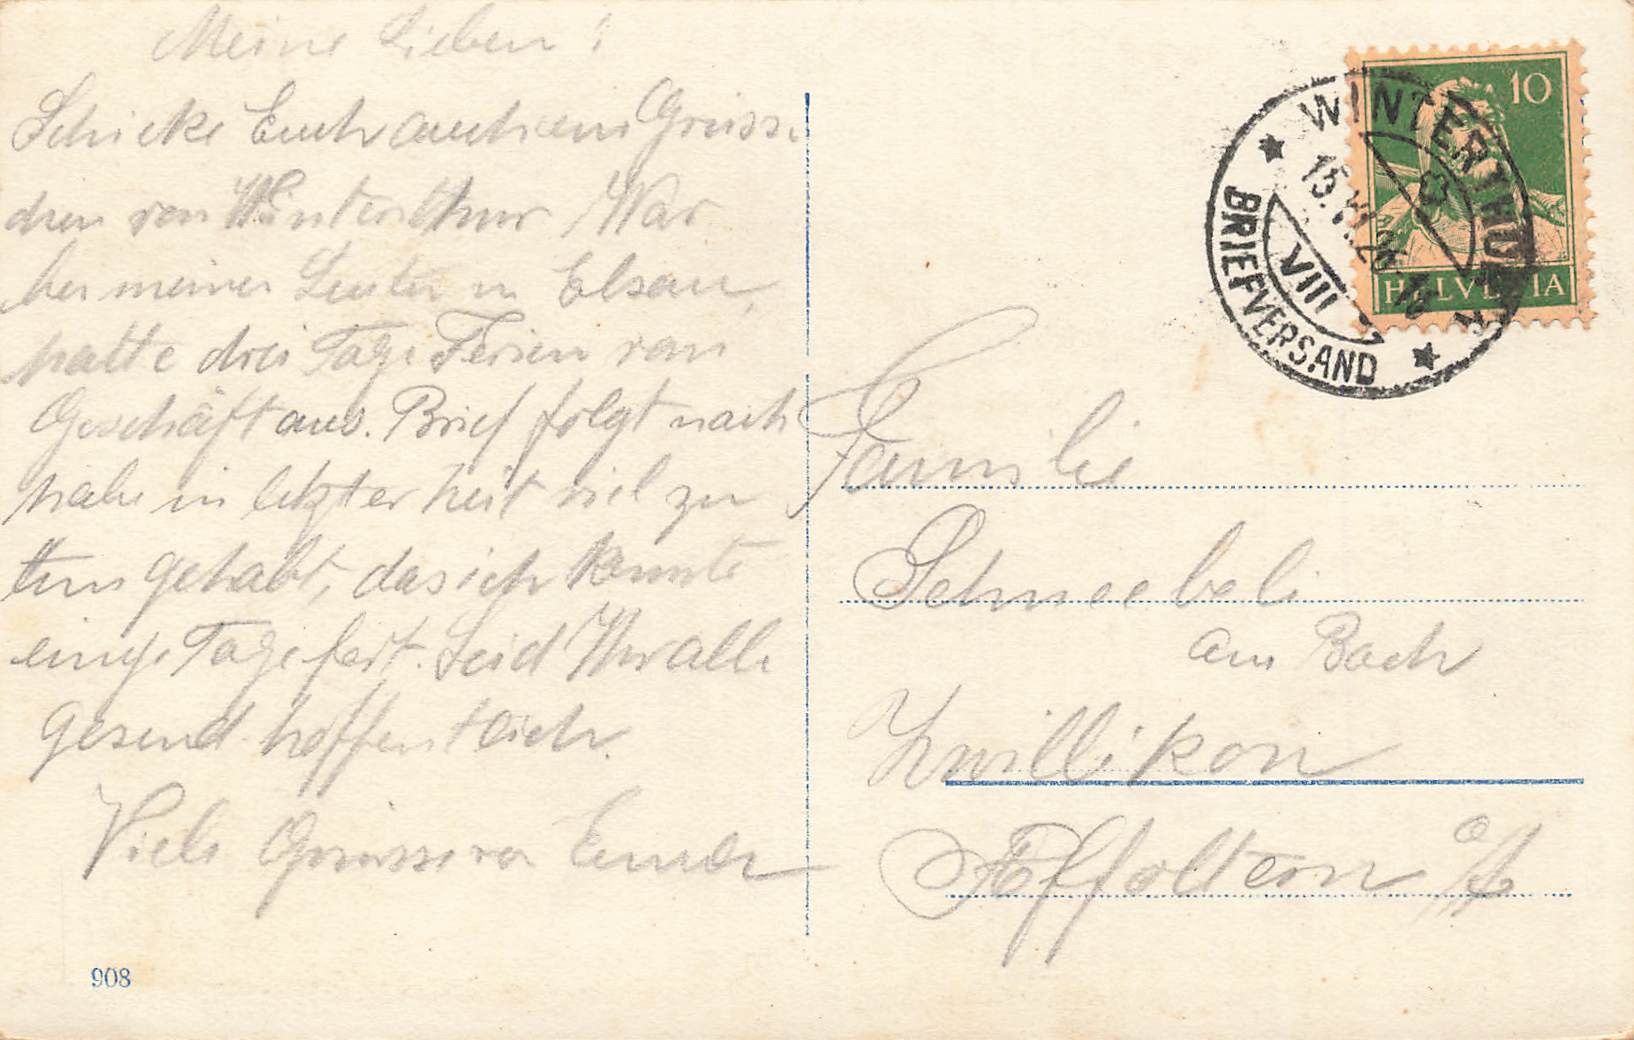 Meine Lieben!
Schicke Euch auch ein Grüss-
chen von Winterthur. War
bei meinen Leuten in Elsau,
hatte drei Tage Ferien vom
Geschäft aus. Brief folgt nach
habe in letzter Zeit viel zu
tun gehabt, das ich konnte
einige Tage fort. Seid Ihr alle
gesund hoffentlich.
Viele Grüsse von
908
WINTERTHUR
BRIEFVERSAND
VIII
10
HELVETIA
Familie
Schneebeli
am Bach
Zwillikon
Affoltern a/A